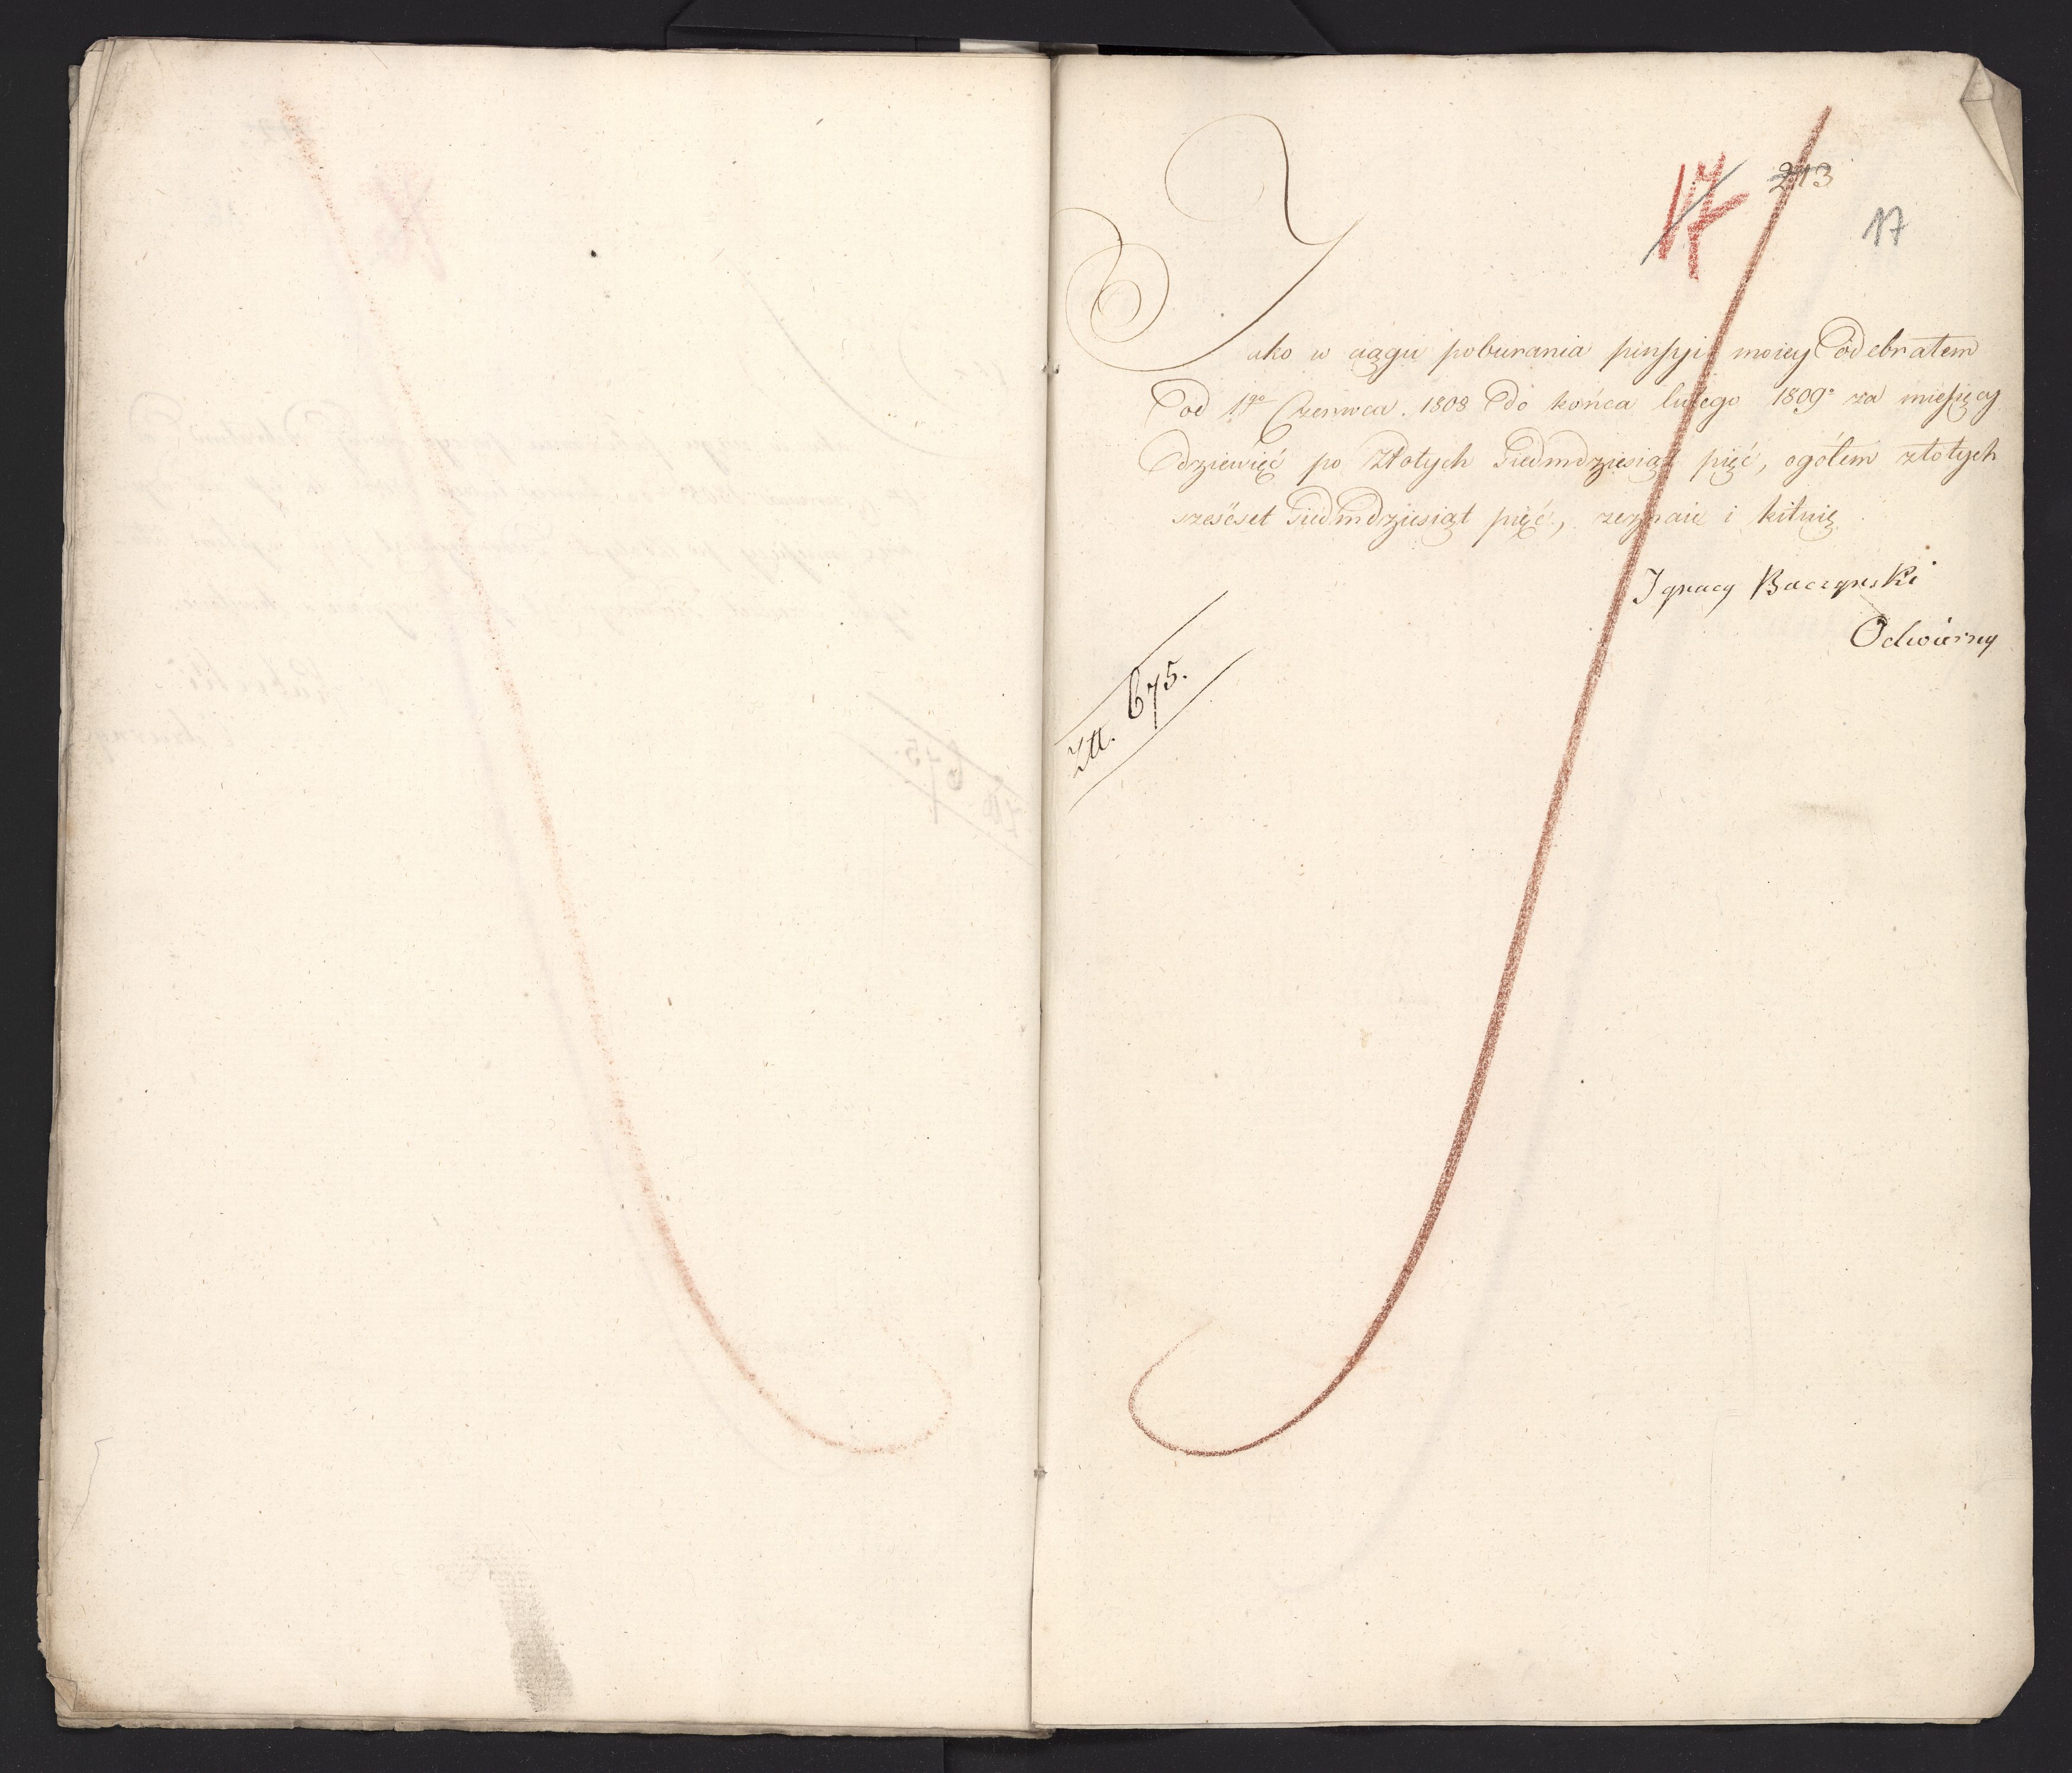 213
17
17
Jako w ciągu pobierania pensyi moiey Odebrałem
Od 1go Czerwca 1808 Do końca lutego 1809o za miesięcy
Dziewięć po Złotych Siedmdziesiąt pięć, ogółem złotych
sześćset Siedmdziesiąt pięć, zeznaię i kwituię
Ignacy Baczynski
Odwierny
Złt. 675.